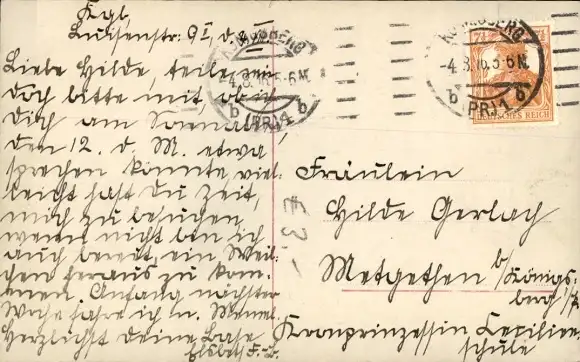 Kgb.
Luisenstr. 9 I, d. 3. VIII
Liebe Hilde, teile mir
doch bitte mit, ob ich
Dich am Sonnabend
den 12. d. M. etwa
sprechen könnte, viel-
leicht hast Du Zeit,
mich zu besuchen,
wenn nicht bin ich
auch bereit, ein Weil-
chen heraus zu kom-
men. Anfang nächster
Woche fahre ich n. Memel
Herzlichst deine Base
Elsbeth
KÖNIGSBERG
-4.8.16.5-6N.
b (PR) 1 b
KÖNIGSBERG
-4.8.16.5-6N.
b (PR) 1 b
7½
DEUTSCHES REICH
Fräulein
Hilde Gerlach
Metgethen b/Königs-
berg i/P
Kronprinzessin Cecilien-
schule